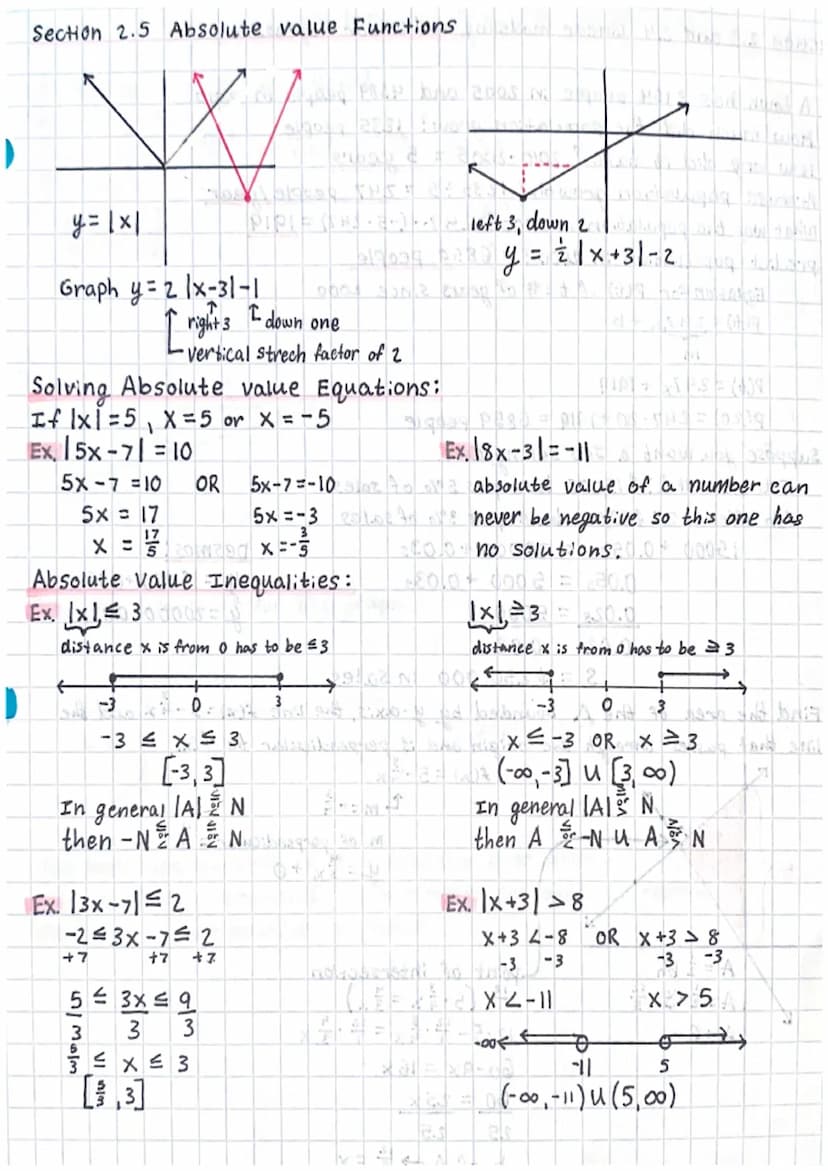 Section 2.5 Absolute value Functions
y = |x|
left 3, down 2
y = 1/2 |x+3|-2
Graph y = 2 |x-3|-1
right 3 down one
vertical strech factor of 2
Solving Absolute value Equations:
If |x|=5, x=5 or x=-5
Ex. |5x-7| = 10
5x-7=10 OR 5x-7=-10
5x = 17 5x=-3
x = 17/5 x=-3/5
Ex. |8x-3|=-11
absolute value of a number can
never be negative so this one has
no solutions.
Absolute Value Inequalities:
Ex. |x|≤ 3
distance x is from 0 has to be ≤3
-3 0 3
-3 ≤ x ≤ 3
[-3,3]
In general |A| ≤ or < N
then -N ≤ or < A ≤ or < N
|x|≥3
distance x is from 0 has to be ≥3
-3 0 3
x ≤ -3 OR x ≥3
(-∞,-3] U [3,∞)
In general |A| ≥ or > N
then A ≤ or < -N U A ≥ or > N
Ex. |3x-7| ≤ 2
-2≤3x-7≤ 2
+7 +7 +7
5/3 ≤ 3x/3 ≤ 9/3
5/3 ≤ x ≤ 3
[5/3,3]
Ex. |x+3| >8
x+3 <-8 OR x+3 > 8
-3 -3 -3 -3
x <-11 x >5
-∞ -11 5
(-∞,-11) U (5,∞)